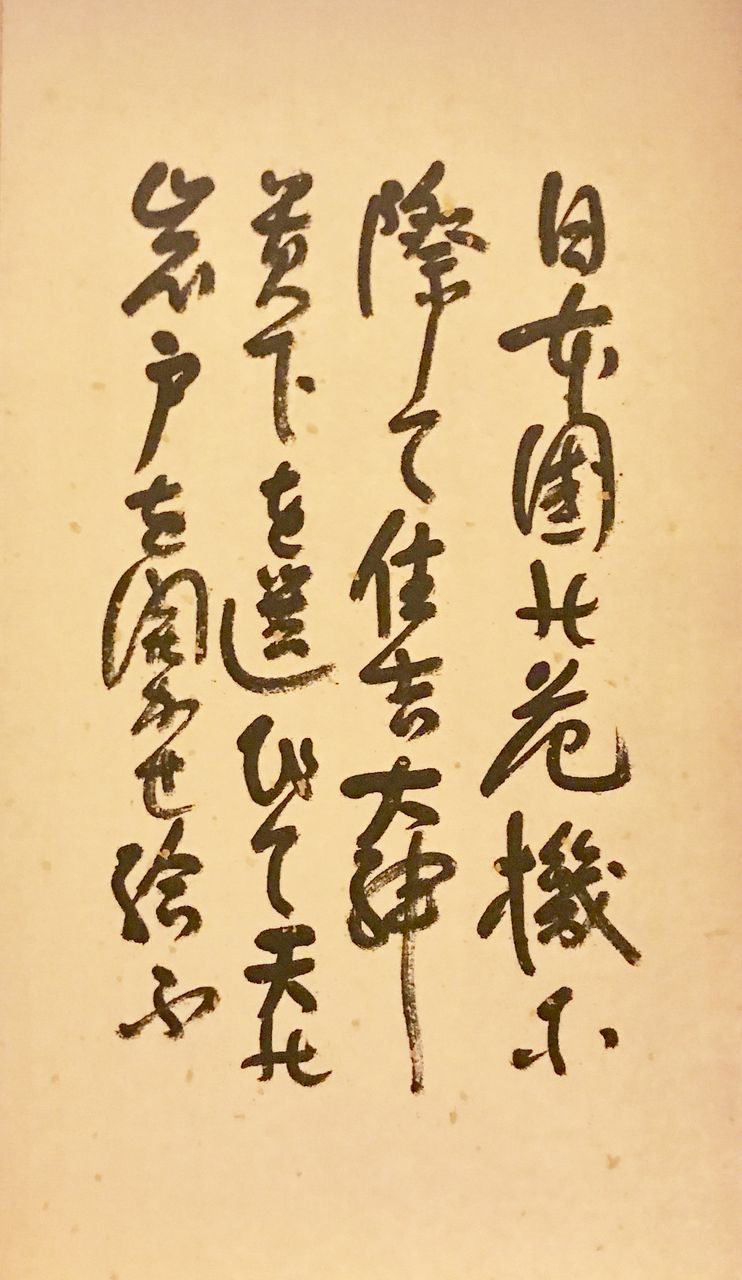 日本國の危機に
際して住吉大神
貴下を選びて天の
岩戸を開かせ給ふ